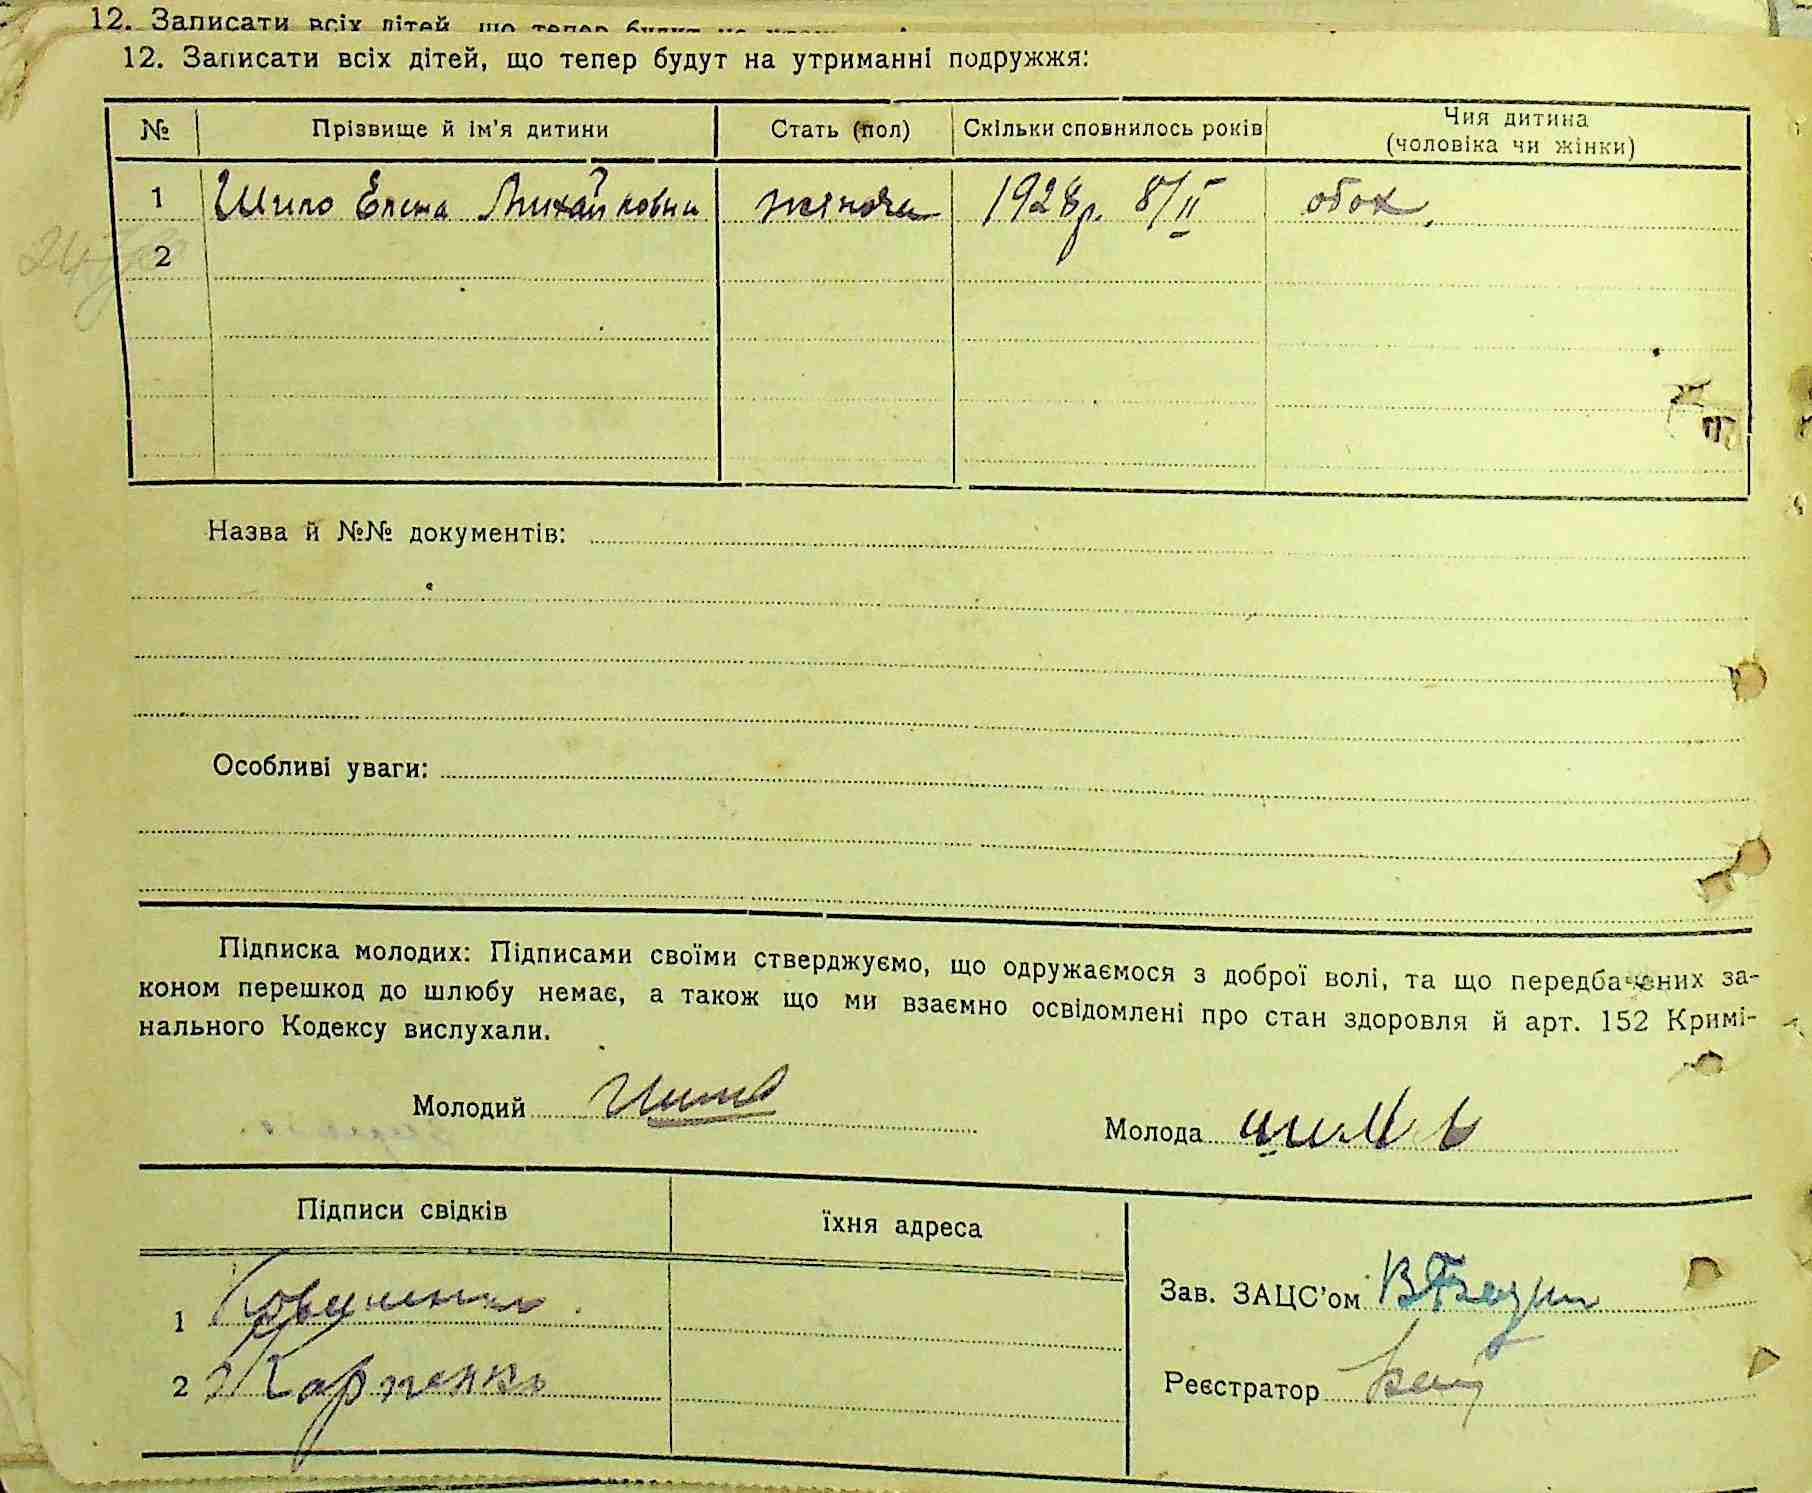 12. Записати всіх дітей, що тепер будут на
12. Записати всіх дітей, що тепер будут на утриманні подружжя:
№ Прізвище й ім’я дитини Стать (пол) Скільки сповнилось років Чия дитина
(чоловіка чи жінки)
1 Шило Елена Михайловна жіноча 1928р. 8/II обох.
2
Назва й №№ документів:
Особливі уваги:
Підписка молодих: Підписами своїми стверджуємо, що одружаємося з доброї волі, та що передбачених за-
коном перешкод до шлюбу немає, а також що ми взаємно освідомлені про стан здоровля й арт. 152 Кримі-
нального Кодексу вислухали.
Молодий Шило Молода Шило
Підписи свідків їхня адреса
Зав. ЗАЦС’ом
1
2 Карпенко
Реєстратор